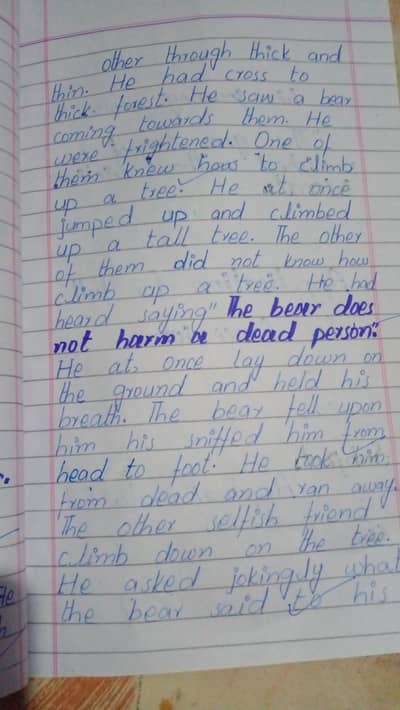 other through thick and
thin. He had cross to
thick forest. He saw a bear
coming towards them. He
were frightened. One of
them knew how to climb
up a tree. He at once
jumped up and climbed
up a tall tree. The other
of them did not know how
climb up a tree. He had
heard saying" The bear does
not harm a dead person."
He at once lay down on
the ground and held his
breath. The bear fell upon
him his sniffed him from
head to foot. He took him
from dead and ran away.
The other selfish friend
climb down on the tree.
He asked jokingly what
the bear said to his
He